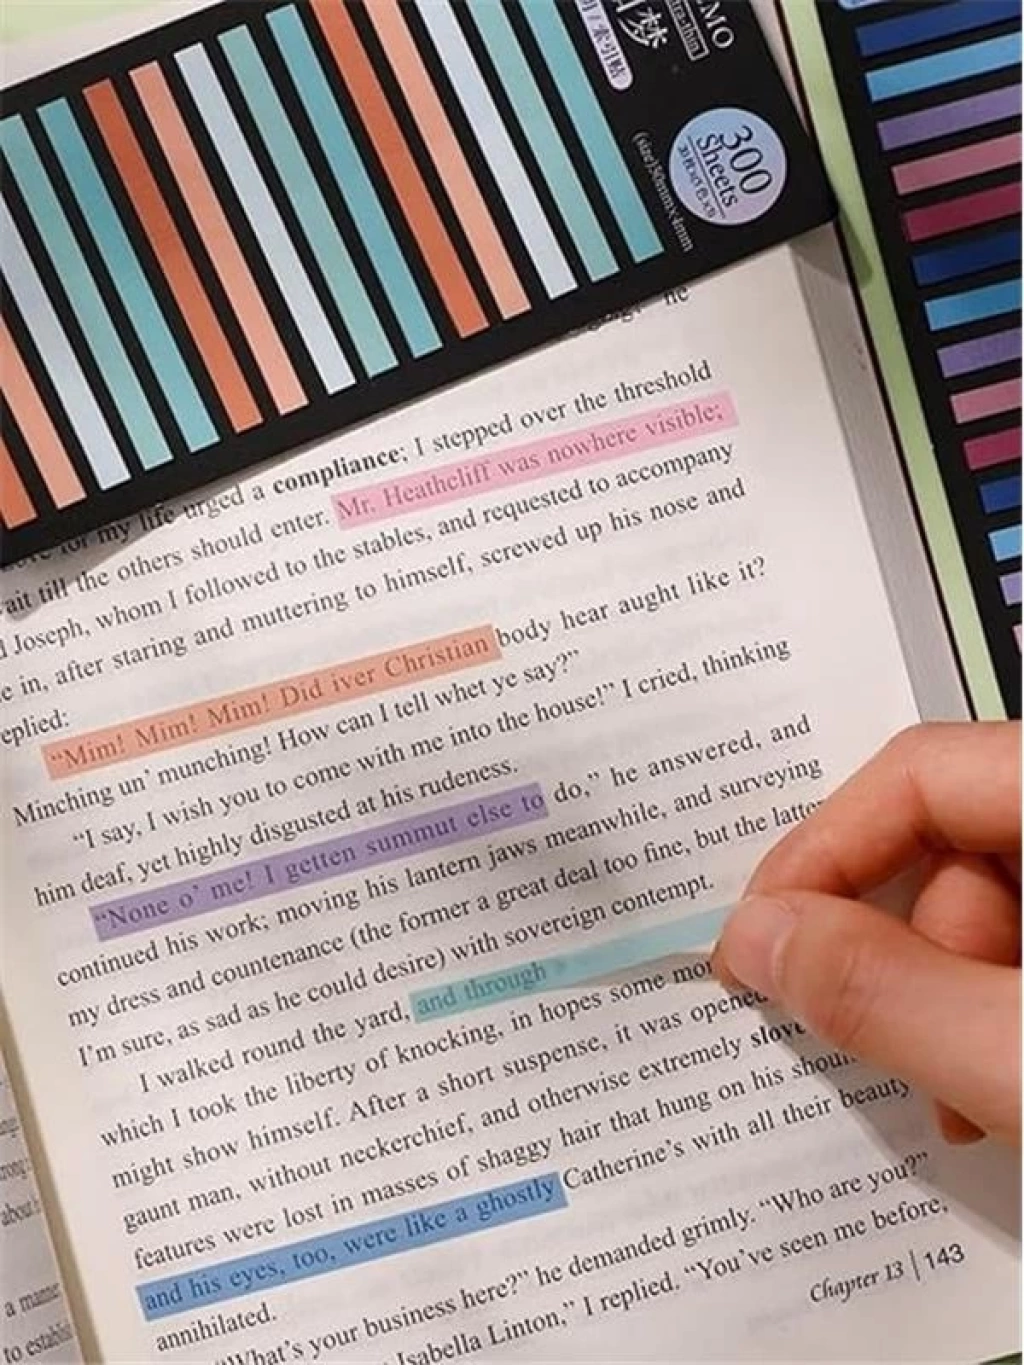 MEMO
300
Sheets
he
compliance; I stepped over the threshold
for my life urged a
wait till the others should enter. Mr. Heathcliff was nowhere visible;
Joseph, whom I followed to the stables, and requested to accompany
in, after staring and muttering to himself, screwed up his nose and
replied:
“Mim! Mim! Mim! Did iver Christian body hear aught like it?
Minching un’ munching! How can I tell whet ye say?”
“I say, I wish you to come with me into the house!” I cried, thinking
him deaf, yet highly disgusted at his rudeness.
“None o’ me! I getten summut else to do,” he answered, and
continued his work; moving his lantern jaws meanwhile, and surveying
my dress and countenance (the former a great deal too fine, but the latter,
I’m sure, as sad as he could desire) with sovereign contempt.
I walked round the yard, and through
which I took the liberty of knocking, in hopes some mor
might show himself. After a short suspense, it was opened
gaunt man, without neckerchief, and otherwise extremely slove
features were lost in masses of shaggy hair that hung on his shoul
and his eyes, too, were like a ghostly Catherine’s with all their beauty
annihilated.
“What’s your business here?” he demanded grimly. “Who are you?”
Isabella Linton,” I replied. “You’ve seen me before,
Chapter 13 | 143
a manne
to establis